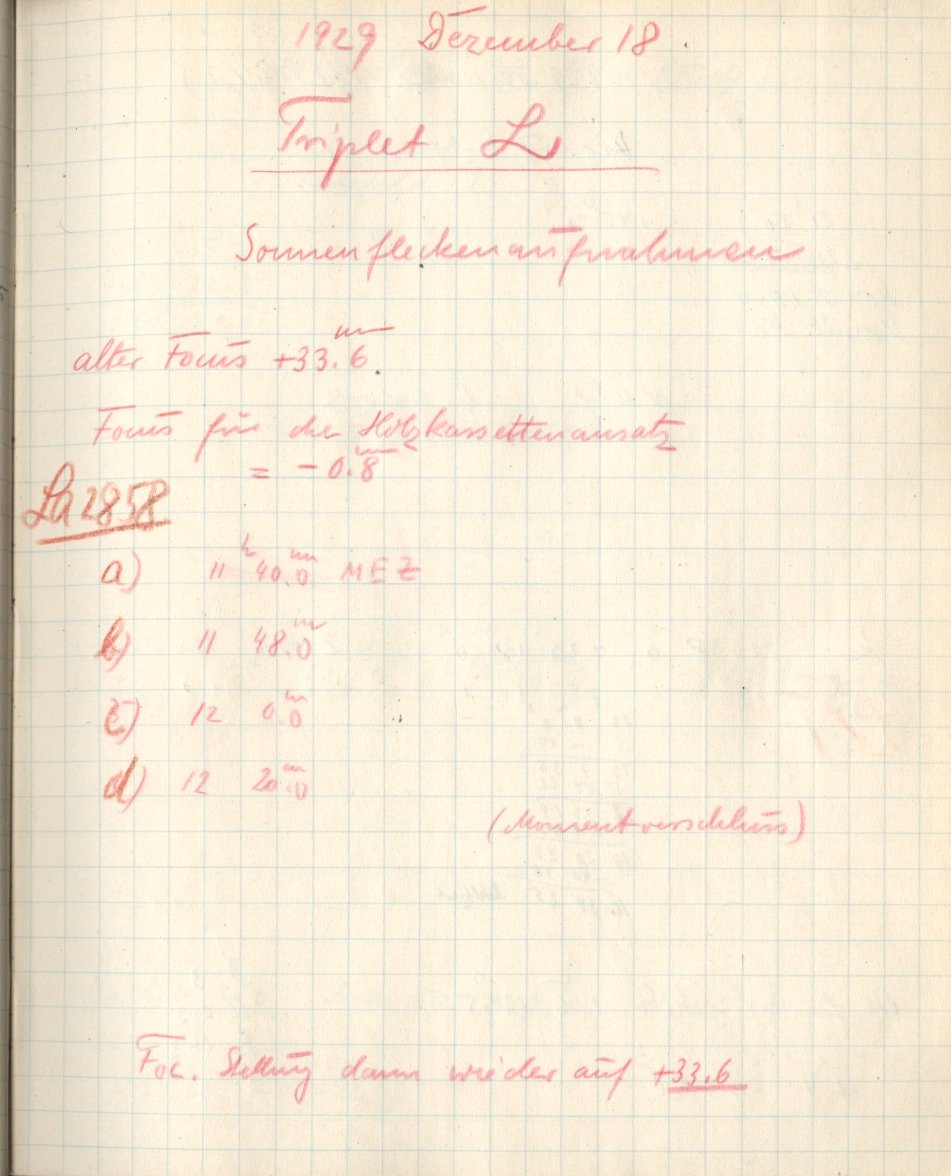 1929 Dezember 18.
Triplet L
Sonnenfleckenaufnahmen
alter Focus +33.6 mm.
Focus für den Holzkassettenansatz
= -0.8 mm
La 2858
a) 11h 40.0m MEZ
b) 11 48.0m
c) 12 0.0m
d) 12 20.0m
(Momentverschluss)
Foc. Stellung dann wieder auf +33.6